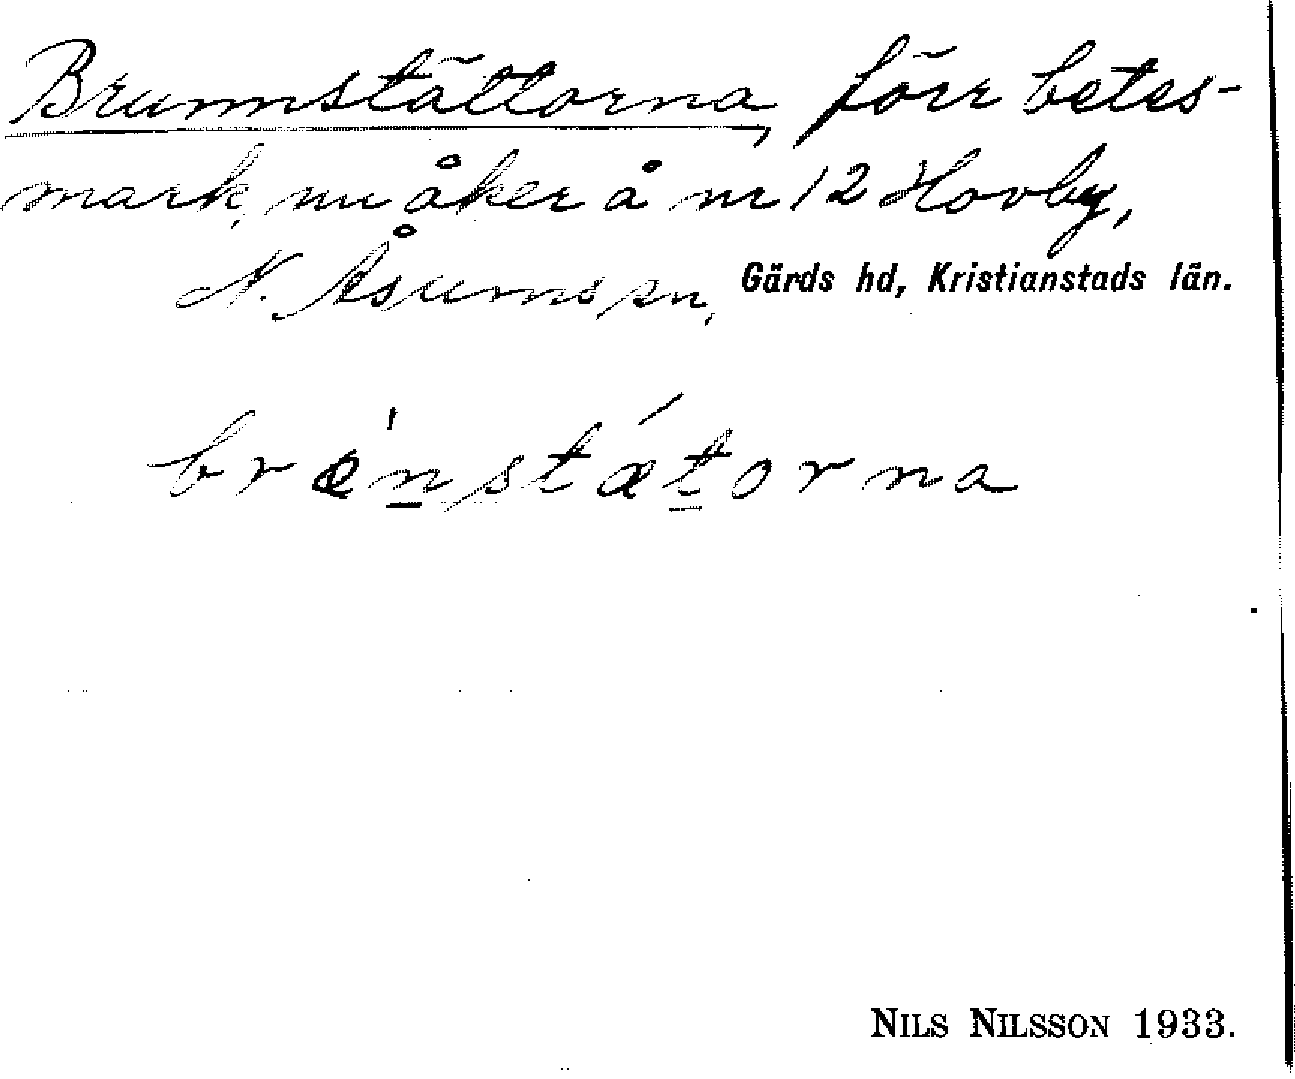 Brunnstättorna, förr betes-
mark, nu åker å nr 12 Hovby,
N. Åsums sn, Gärds hd, Kristianstads län.
bræ̀n̲stǽt̲orna
NILS NILSSON 1933.